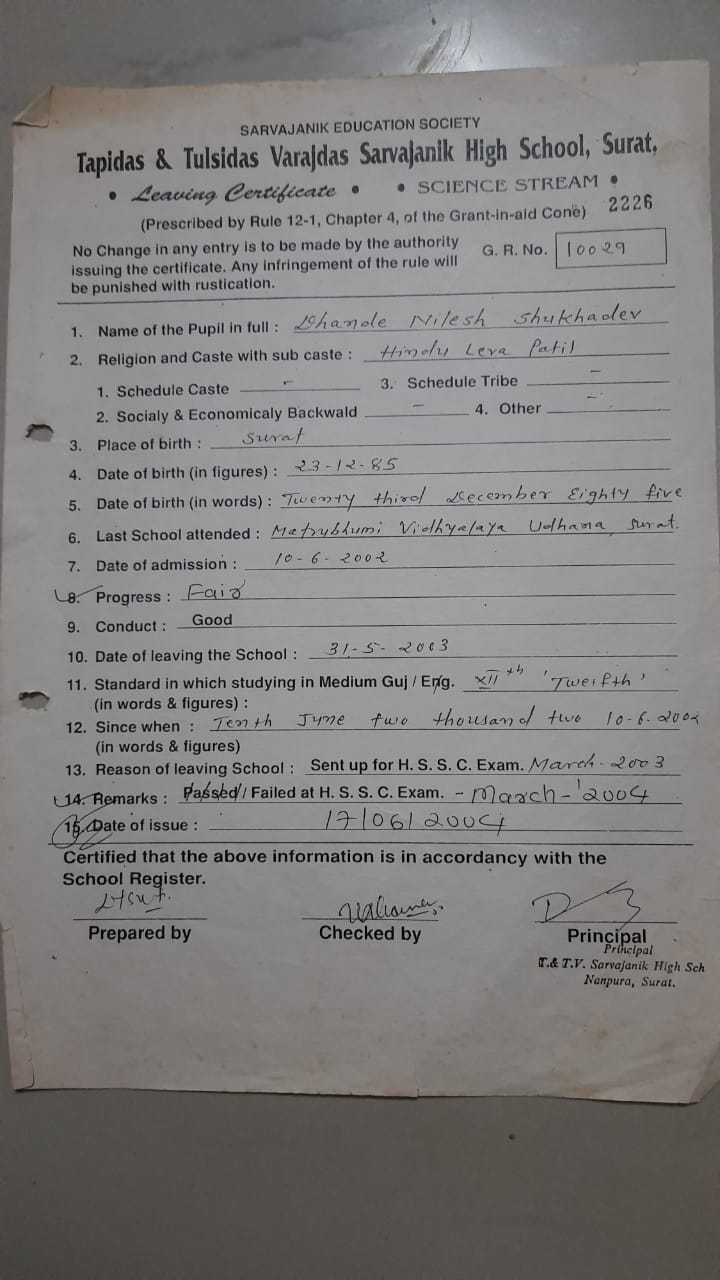 SARVAJANIK EDUCATION SOCIETY
Tapidas & Tulsidas Varajdas Sarvajanik High School, Surat.
• Leaving Certificate • • SCIENCE STREAM •
(Prescribed by Rule 12-1, Chapter 4, of the Grant-in-aid Cone) 2226
No Change in any entry is to be made by the authority
issuing the certificate. Any infringement of the rule will
be punished with rustication.
G. R. No. 10029
1. Name of the Pupil in full : Dhande Nilesh Shukhadev
2. Religion and Caste with sub caste : Hindu Leva Patil
1. Schedule Caste - 3. Schedule Tribe -
2. Socialy & Economicaly Backwald - 4. Other -
3. Place of birth : Surat
4. Date of birth (in figures) : 23-12-85
5. Date of birth (in words) : Twenty third December Eighty five
6. Last School attended : Matrubhumi Vidhyalaya Udhana, Surat.
7. Date of admission : 10-6-2002
8. Progress : Fair
9. Conduct : Good
10. Date of leaving the School : 31-5-2003
11. Standard in which studying in Medium Guj / Eng. XIIth 'Twelfth'
(in words & figures) :
12. Since when : Tenth June two thousand two 10-6-2002
(in words & figures)
13. Reason of leaving School : Sent up for H. S. S. C. Exam. March-2003
14. Remarks : Passed / Failed at H. S. S. C. Exam. - March-'2004
15. Date of issue : 17/06/2004
Certified that the above information is in accordance with the
School Register.
Prepared by Checked by Principal
Principal
T.& T.V. Sarvajanik High Sch
Nanpura, Surat.